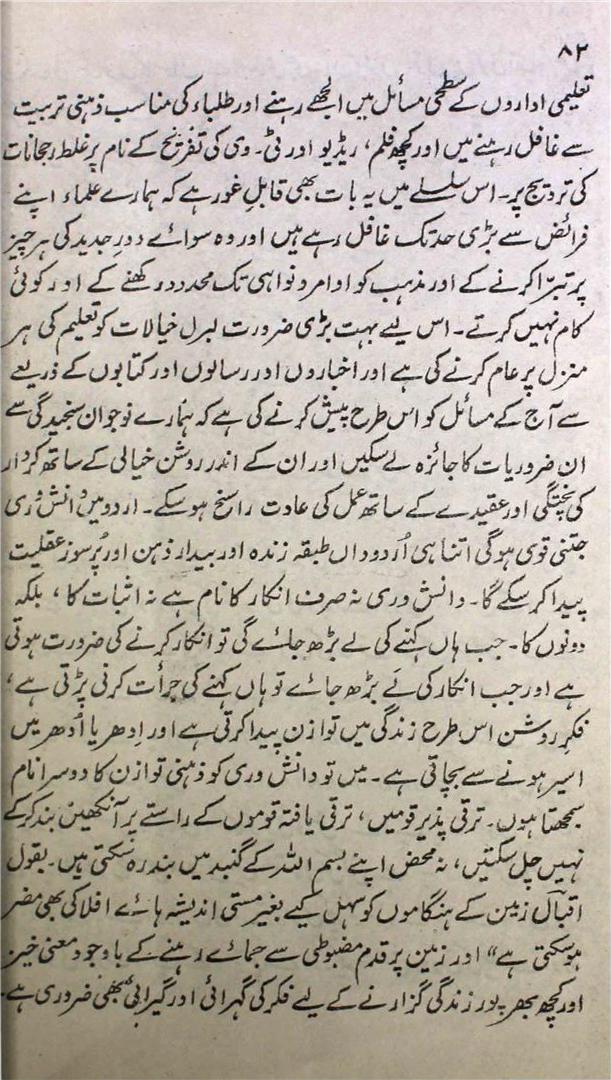 ۸۲
تعلیمی اداروں کے سطحی مسائل میں الجھے رہنے اور طلباء کی مناسب ذہنی تربیت
سے غافل رہنے میں اور کچھ فلم، ریڈیو اور ٹی۔ وی کی تفریح کے نام پر غلط رجحانات
کی ترویج پر۔ اس سلسلے میں یہ بات بھی قابلِ غور ہے کہ ہمارے علماء اپنے
فرائض سے بڑی حد تک غافل رہے ہیں اور وہ سوائے دورِ جدید کی ہر چیز
پر تبرّا کرنے کے اور مذہب کو اوامر و نواہی تک محدود رکھنے کے اور کوئی
کام نہیں کرتے۔ اس لیے بہت بڑی ضرورت لبرل خیالات کو تعلیم کی ہر
منزل پر عام کرنے کی ہے اور اخباروں اور رسالوں اور کتابوں کے ذریعے
سے آج کے مسائل کو اس طرح پیش کرنے کی ہے کہ ہمارے نوجوان سنجیدگی سے
ان ضروریات کا جائزہ لے سکیں اور ان کے اندر روشن خیالی کے ساتھ کردار
کی پختگی اور عقیدے کے ساتھ عمل کی عادت راسخ ہو سکے۔ اردو میں دانش وری
جتنی قوی ہوگی اتنا ہی اُردو داں طبقہ زندہ اور بیدار ذہن اور پُرسوز عقلیت
پیدا کر سکے گا۔ دانش وری نہ صرف انکار کا نام ہے نہ اثبات کا، بلکہ
دونوں کا۔ جب ہاں کہنے کی لے بڑھ جائے گی تو انکار کرنے کی ضرورت ہوتی
ہے اور جب انکار کی لَے بڑھ جائے تو ہاں کہنے کی جرأت کرنی پڑتی ہے،
فکرِ روشن اس طرح زندگی میں توازن پیدا کرتی ہے اور اِدھر یا اُدھر میں
اسیر ہونے سے بچاتی ہے۔ میں تو دانش وری کو ذہنی توازن کا دوسرا نام
سمجھتا ہوں۔ ترقی پذیر قومیں، ترقی یافتہ قوموں کے راستے پر آنکھیں بند کرکے
نہیں چل سکتیں، نہ محض اپنے بسم اللہ کے گنبد میں بند رہ سکتی ہیں۔ بقول
اقبالؔ زمین کے ہنگاموں کو سہل کیے بغیر مستی اندیشہ ہائے افلاکی بھی مضر
ہو سکتی ہے" اور زمین پر قدم مضبوطی سے جمائے رہنے کے باوجود معنی خیز
اور کچھ بھرپور زندگی گزارنے کے لیے فکر کی گہرائی اور گیرائی بھی ضروری ہے۔